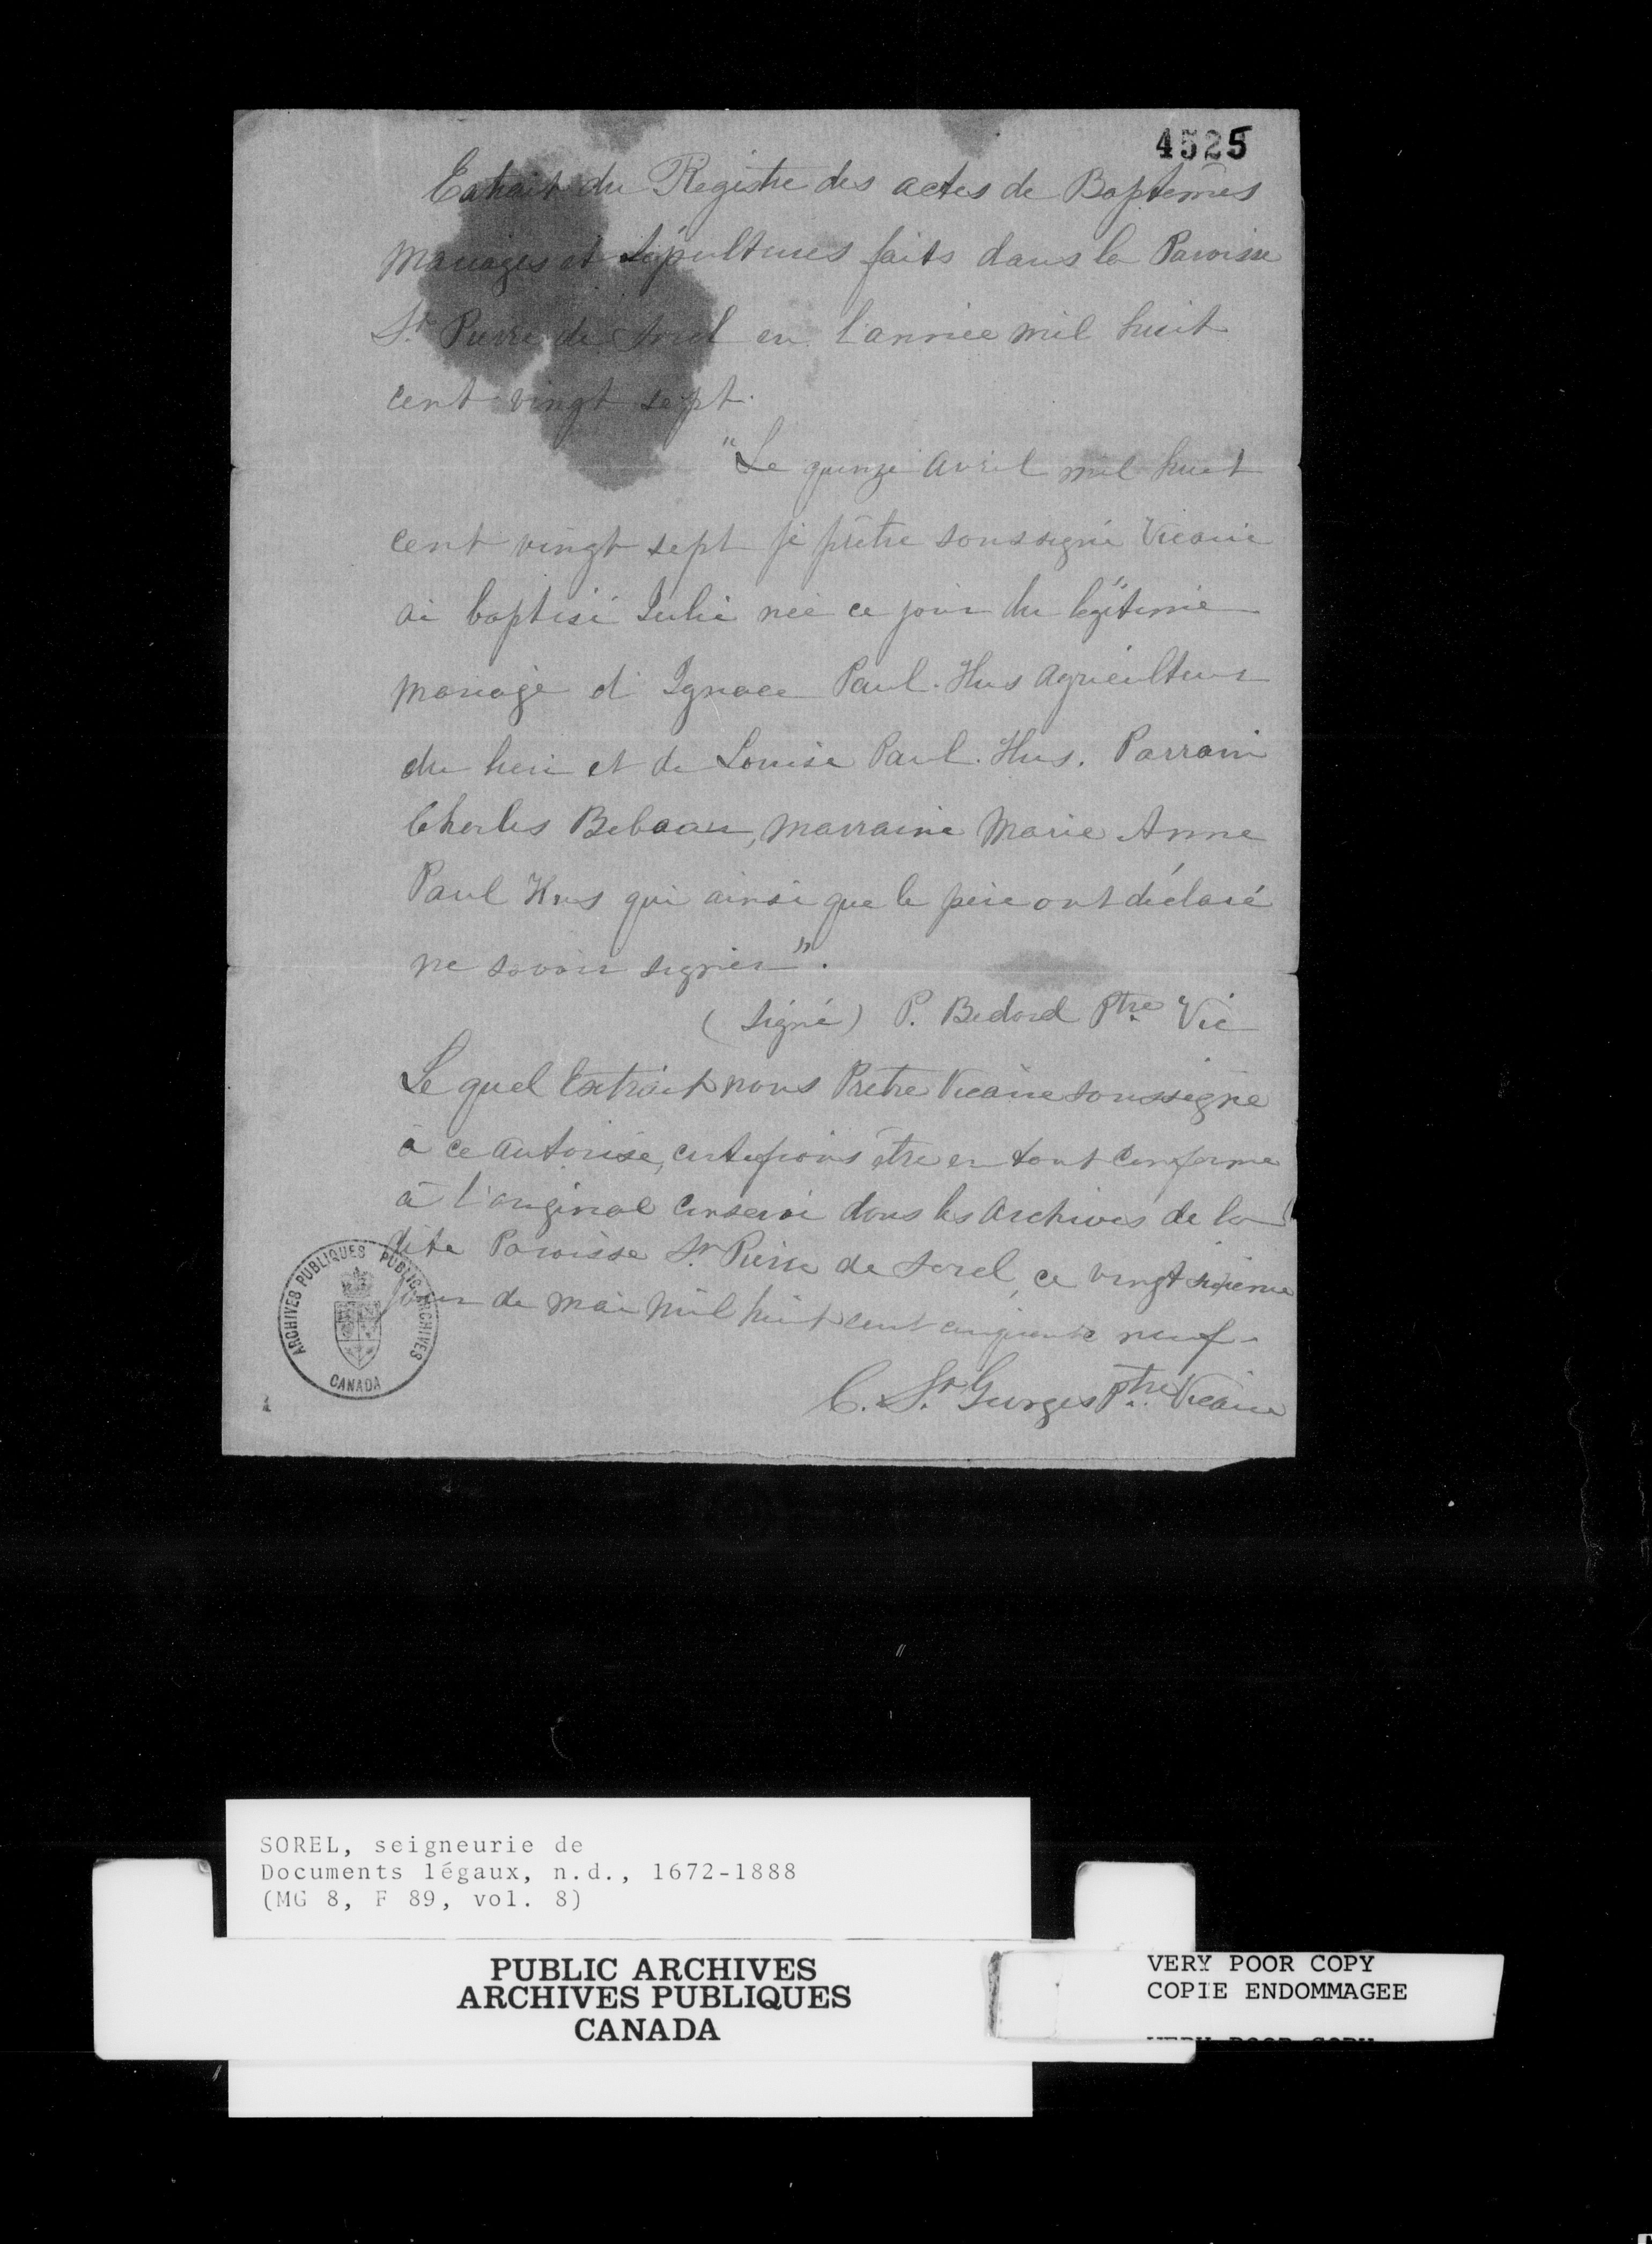 4525
Extrait du Registre des actes de Baptêmes
Mariages et Sépultures faits dans la Paroisse
St. Pierre de Sorel en l'année mil huit
cent vingt sept.
"Le quinze Avril mil huit
cent vingt sept je prêtre soussigné Vicaire
ai baptisé Julie née ce jour du légitime
mariage d'Ignace Paul. Hus Agriculteur
du lieu et de Louise Paul. Hus. Parrain
Charles Bebeau, Marraine Marie Anne
Paul Hus qui ainsi que le père ont déclaré
ne savoir signer".
(Signé) P. Bedard Ptre. Vic
Le quel Extrait nous Prêtre Vicaire soussigné
à ce autorisé, certifions être en tout conforme
à l'original conservé dans les Archives de la
dite Paroisse St. Pierre de Sorel, ce vingt sixième
jour de mai mil huit cent cinquante neuf.
C. St. Georges Ptre. Vicaire
ARCHIVES PUBLIQUES PUBLIC ARCHIVES
CANADA
SOREL, seigneurie de
Documents légaux, n.d., 1672-1888
(MG 8, F 89, vol. 8)
PUBLIC ARCHIVES
ARCHIVES PUBLIQUES
CANADA
VERY POOR COPY
COPIE ENDOMMAGEE
VERY POOR COPY